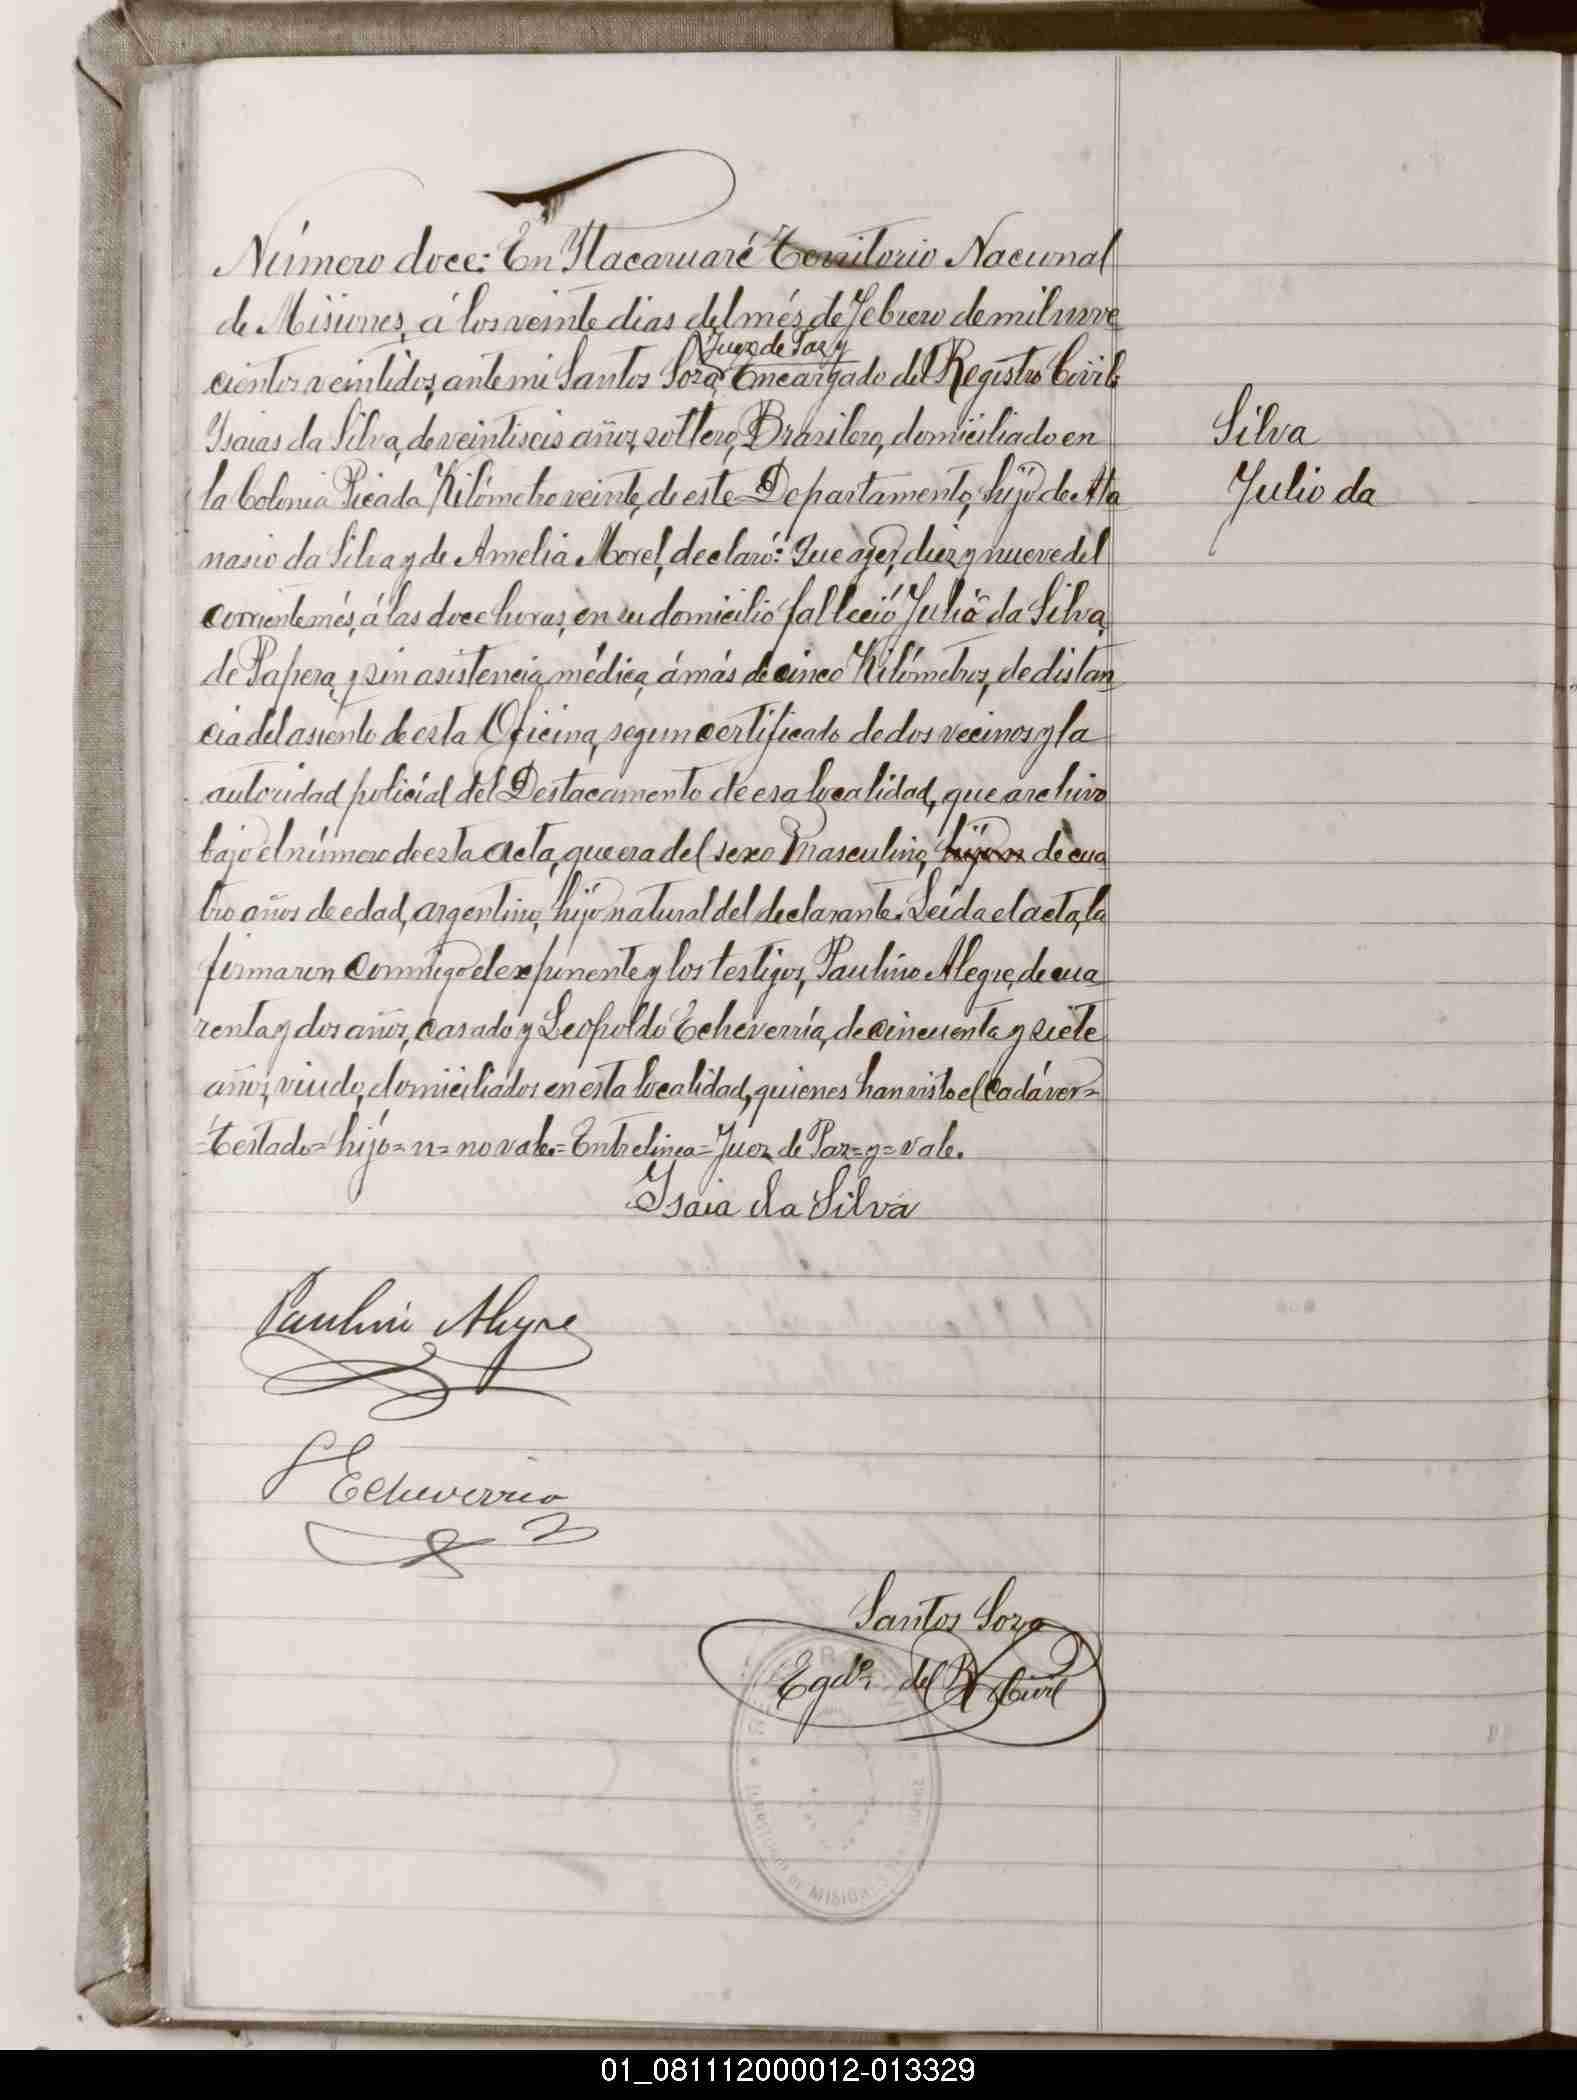 Número doce: En Ytacaruaré Territorio Nacional
de Misiones, á los veinte dias del més de Febrero de mil nove
Juez de Paz y
cientos veintidos, ante mi Santos Soza, Encargado del Registro Civil:
Isaias da Silva, de veintiseis años, soltero, Brasilero, domiciliado en
la Colonia Picada Kilómetro veinte, de este Departamento, hijo de Ata
nasio da Silva y de Amelia Morel, declaró: Que ayer, diez y nueve del
corriente més, á las doce horas, en su domicilio falleció Julio da Silva,
de Papera, y sin asistencia médica, á más de cinco Kilómetros, de distan
cia del asiento de esta Oficina, segun certificado de dos vecinos y la
autoridad policial del Destacamento de esa localidad, que archivo
bajo el número de esta acta, que era del sexo Masculino, hijo n de cua
tro años de edad, argentino, hijo natural del declarante. Leída el acta, la
firmaron conmigo el exponente y los testigos, Paulino Alegre, de cua
renta y dos años, casado y Leopoldo Echeverría, de cincuenta y siete
años, viudo, domiciliados en esta localidad, quienes han visto el cadáver=
=Testado= hijo= n= no vale.= Entrelinea= Juez de Paz= y= vale.
Isaia da Silva
Paulino Alegre
L Echeverria
Santos Soza
Egdo. del R. Civil
TERRITORIO DE MISIONES
Silva
Julio da
01_081112000012-013329